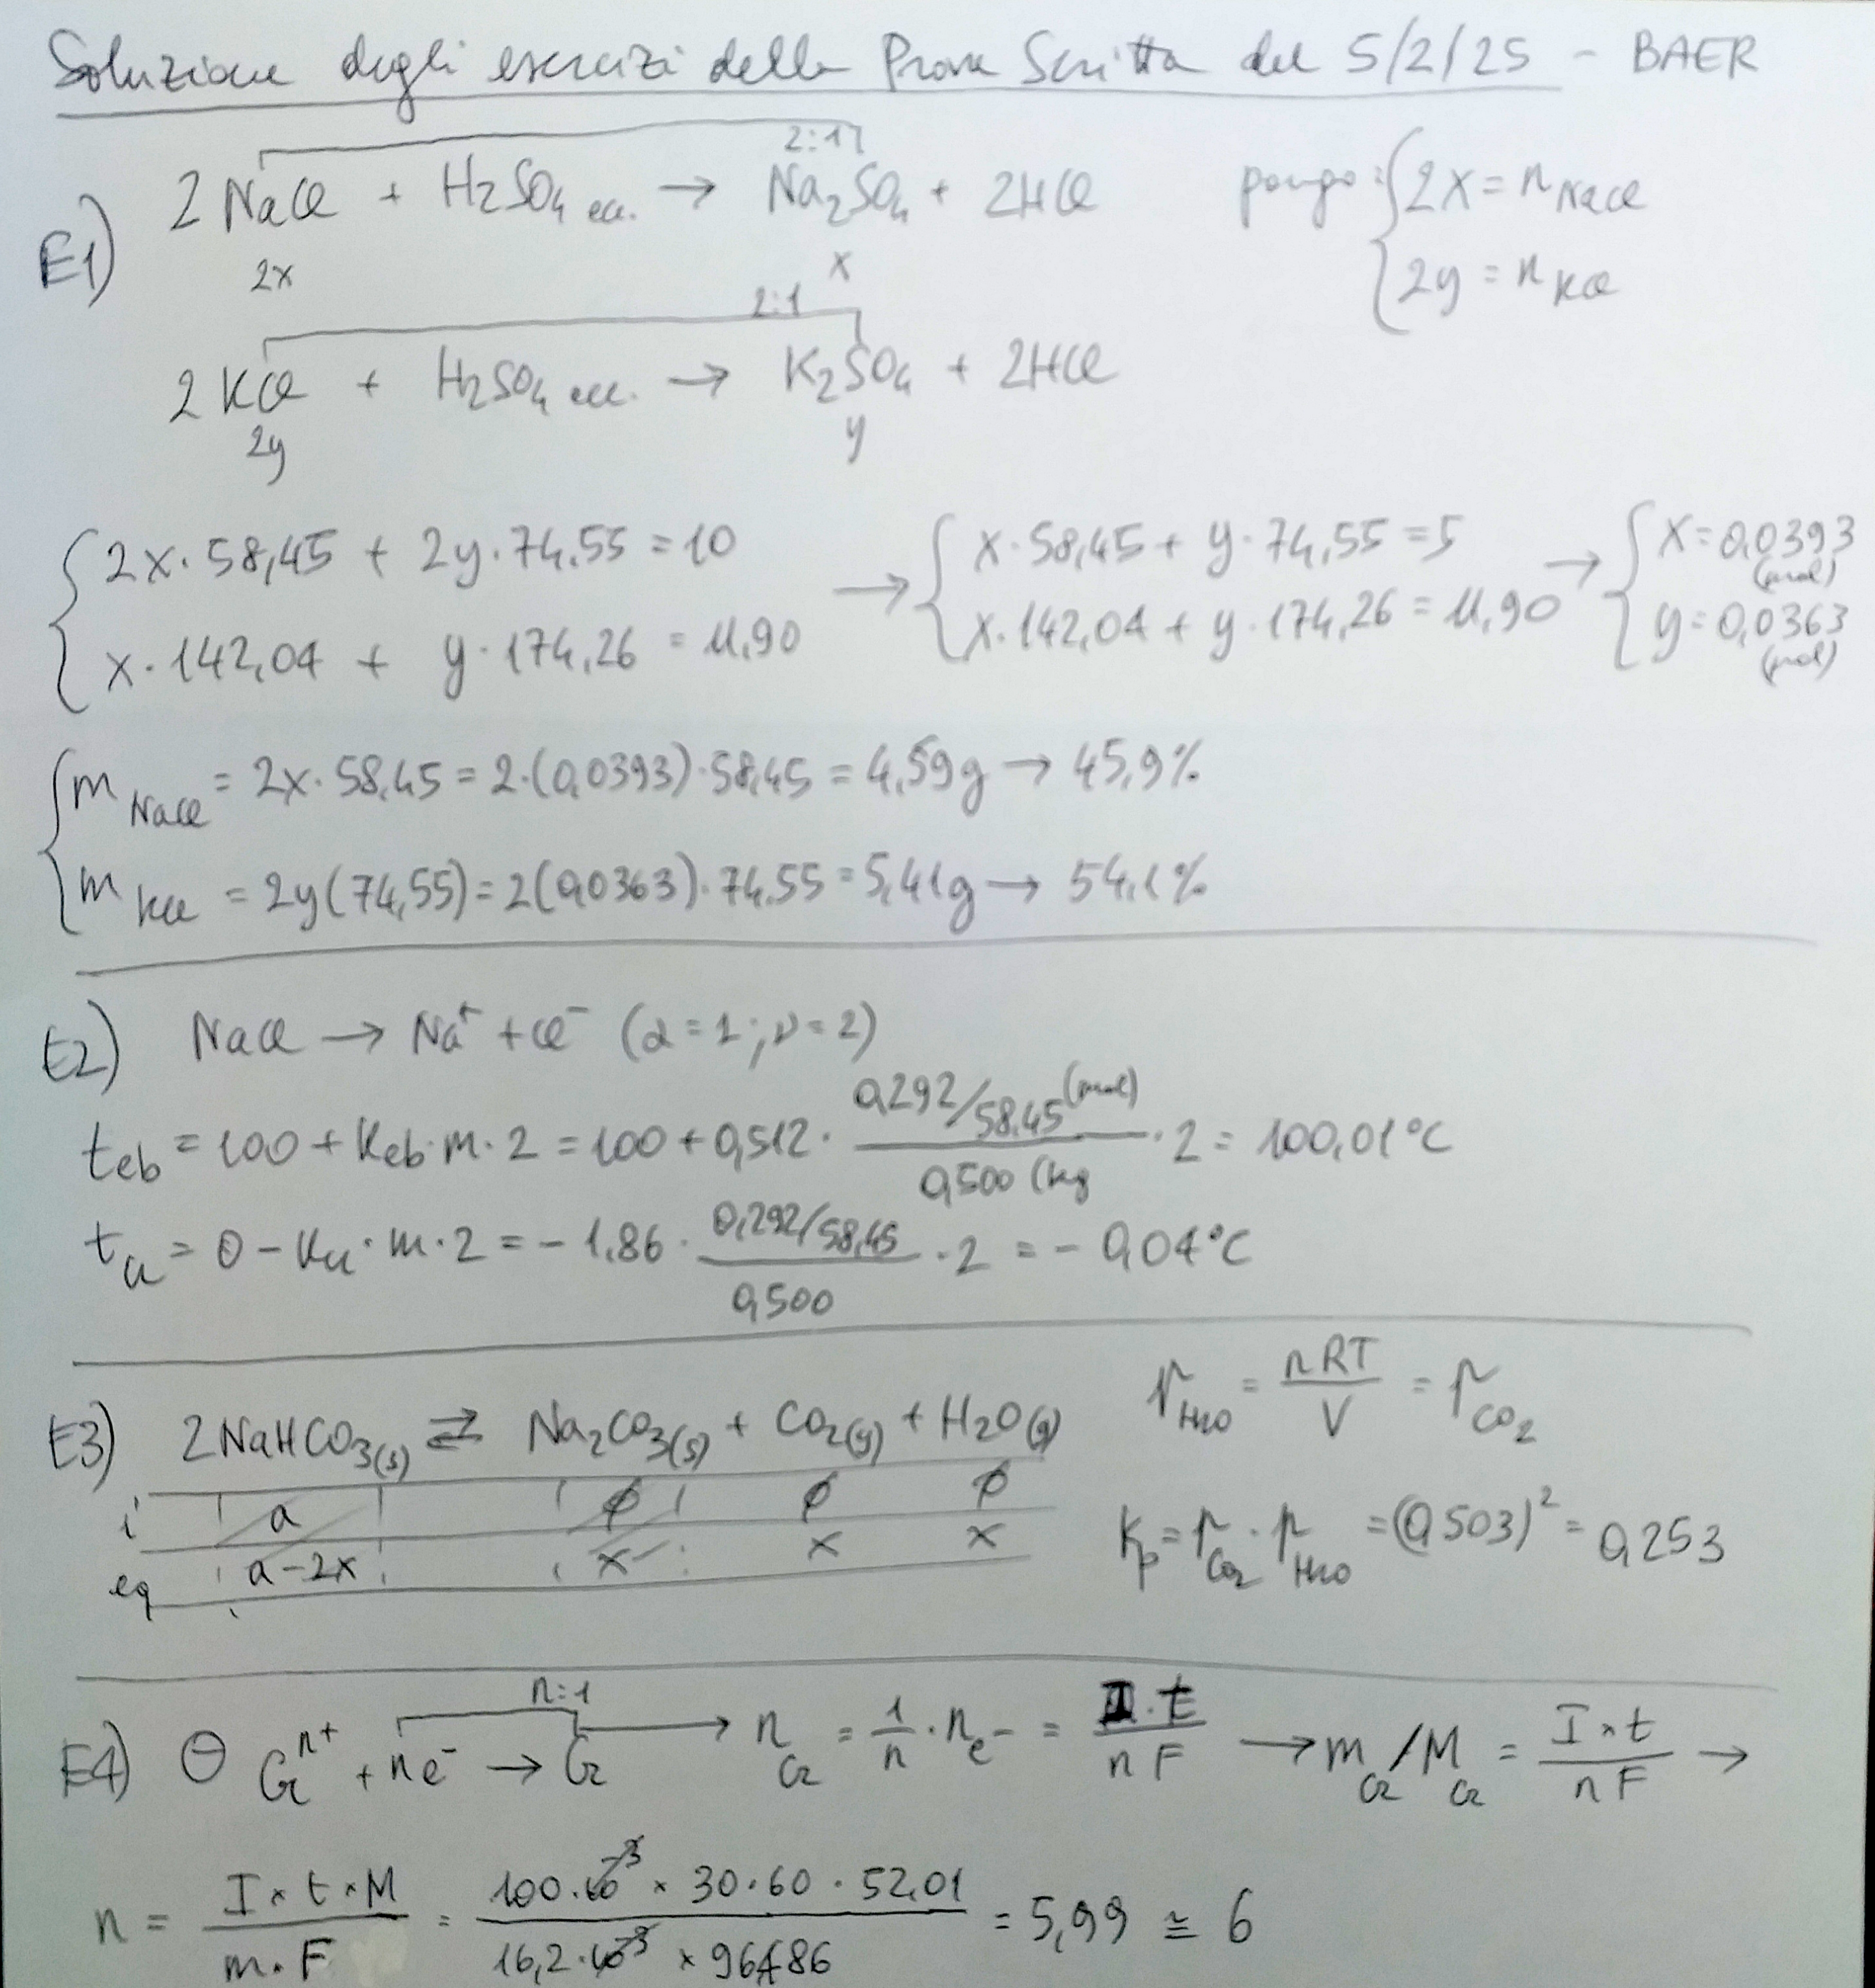 Soluzione degli esercizi della Prova Scritta del 5/2/25 - BAER
2:1
E1) 2NaCl + H2SO4 ecc. → Na2SO4 + 2HCl pongo: {2x = nNaCl
2x x {2y = nKCl
2:1
2KCl + H2SO4 ecc. → K2SO4 + 2HCl
2y y
{2x·58,45 + 2y·74,55 = 10 → {x·58,45 + y·74,55 = 5 → {x = 0,0393 (mol)
{x·142,04 + y·174,26 = 11,90 {x·142,04 + y·174,26 = 11,90 {y = 0,0363 (mol)
{mNaCl = 2x·58,45 = 2·(0,0393)·58,45 = 4,59g → 45,9%
{mKCl = 2y(74,55) = 2(0,0363)·74,55 = 5,41g → 54,1%
E2) NaCl → Na+ + Cl- (α=1; ν=2)
teb = 100 + Keb·m·2 = 100 + 0,512 · 0,292/58,45 (mol) / 0,500 (kg · 2 = 100,01°C
tcr = 0 - Kcr·m·2 = -1,86 · 0,292/58,45 / 0,500 · 2 = -0,04°C
E3) 2NaHCO3(s) ⇄ Na2CO3(s) + CO2(g) + H2O(g) pH2O = nRT/V = pCO2
i a ∅ ∅ ∅
eq a-2x x x x Kp = pCO2 · pH2O = (0,503)² = 0,253
n:1
E4) ⊖ Cr^n+ + ne- → Cr → nCr = 1/n · ne- = I·t / nF → mCr/MCr = I×t / nF →
n = I×t×M / m·F = 100·10^-3 × 30·60 · 52,01 / 16,2·10^-3 × 96486 = 5,99 ≅ 6